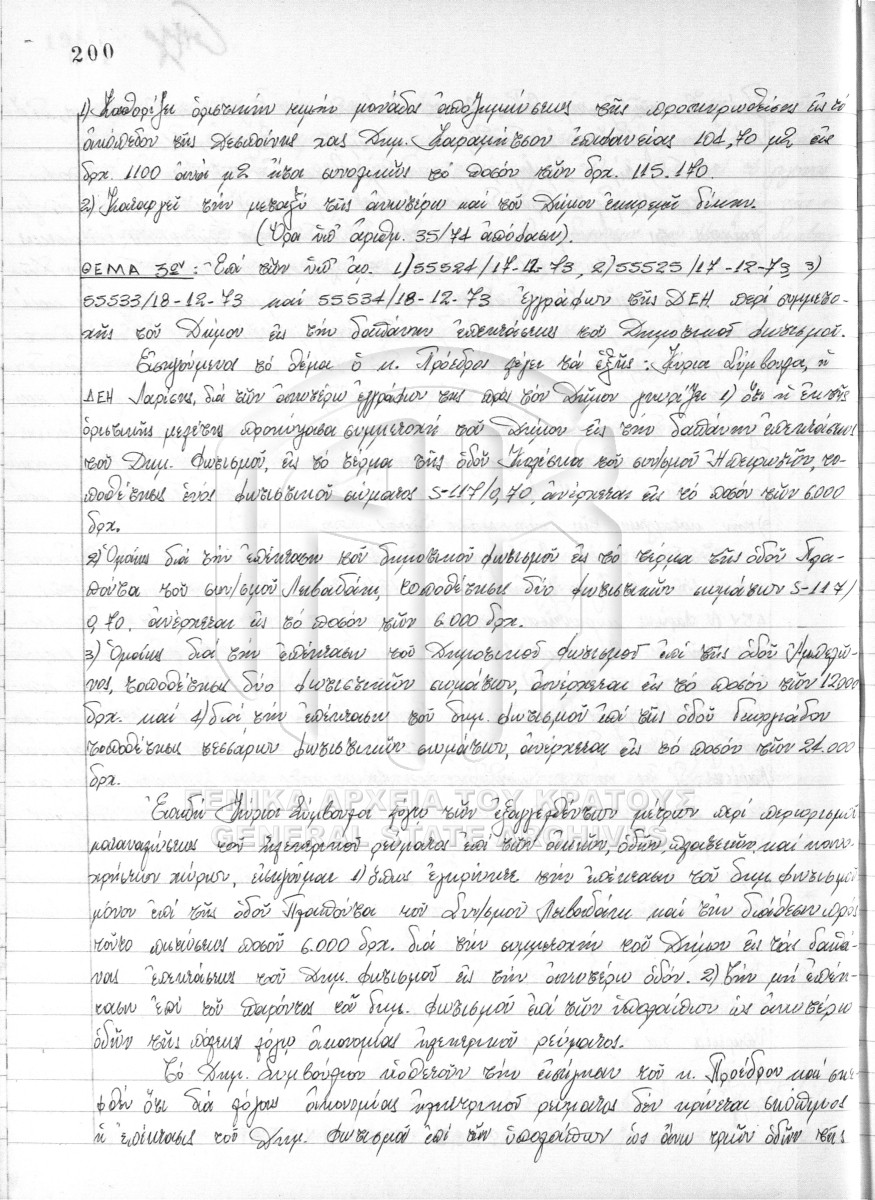 200
1) Καθορίζει ὁριστικήν τιμήν μονάδος ἀποζημιώσεως τῆς προσκυρωθείσης εἰς τό
οἰκόπεδον τῆς Δεσποίνης χας Δημ. Καραμήτσου ἐπιφανείας 104,70 μ2 εἰς
δρχ. 1100 ἀνά μ2 ἤτοι συνολικῶς τό ποσόν τῶν δρχ. 115.170.
2) Καταργεῖ τήν μεταξύ τῆς ἀνωτέρω καί τοῦ Δήμου ἐκκρεμῆ δίκην.
(Ὅρα ὑπ' ἀριθμ. 35/74 ἀπόφασιν).
ΘΕΜΑ 3ον : Ἐπί τῶν ὑπ' ἀρ. 1) 55524/17-12-73, 2) 55525/17-12-73, 3)
55533/18-12-73 καί 55534/18-12-73 ἐγγράφων τῆς ΔΕΗ περί συμμετο-
χῆς τοῦ Δήμου εἰς τήν δαπάνην ἐπεκτάσεως τοῦ Δημοτικοῦ φωτισμοῦ.
Εἰσηγούμενος τό θέμα ὁ κ. Πρόεδρος λέγει τά ἑξῆς: Κύριοι Σύμβουλοι, ἡ
ΔΕΗ Λαρίσης, διά τῶν ἀνωτέρω ἐγγράφων της πρός τόν Δῆμον γνωρίζει 1) ὅτι ἡ ἐκ τῆς
ὁριστικῆς μελέτης προκύψασα συμμετοχή τοῦ Δήμου εἰς τήν δαπάνην ἐπεκτάσεως
τοῦ Δημ. φωτισμοῦ, εἰς τό τέρμα τῆς ὁδοῦ τοῦ συν/σμοῦ Ἠπειρωτῶν, το-
ποθέτησις ἑνός φωτιστικοῦ σώματος S-117/0,70, ἀνέρχεται εἰς τό ποσόν τῶν 6.000
δρχ.
2) Ὁμοίως διά τήν ἐπέκτασιν τοῦ δημοτικοῦ φωτισμοῦ εἰς τό τέρμα τῆς ὁδοῦ Πλα-
πούτα τοῦ συν/σμοῦ Λιβαδάκη, τοποθέτησις δύο φωτιστικῶν σωμάτων S-117/
0,70. ἀνέρχεται εἰς τό ποσόν τῶν 6.000 δρχ.
3) Ὁμοίως διά τήν ἐπέκτασιν τοῦ Δημοτικοῦ φωτισμοῦ ἐπί τῆς ὁδοῦ Ἀμπελῶ-
νος, τοποθέτησις δύο φωτιστικῶν σωμάτων, ἀνέρχεται εἰς τό ποσόν τῶν 12.000
δρχ. καί 4) διά τήν ἐπέκτασιν τοῦ δημ. φωτισμοῦ ἐπί τῆς ὁδοῦ Γεωργιάδου
τοποθέτησις τεσσάρων φωτιστικῶν σωμάτων, ἀνέρχεται εἰς τό ποσόν τῶν 24.000
δρχ.
Ἐπειδή Κύριοι Σύμβουλοι λόγω τῶν ἐξαγγελθέντων μέτρων περί περιορισμοῦ
καταναλώσεως τοῦ ἠλεκτρικοῦ ρεύματος ἐπί τῶν οἰκιῶν, ὁδῶν, πλατειῶν καί κοινο-
χρήστων χώρων, εἰσηγοῦμαι 1) ὅπως ἐγκρίνητε τήν ἐπέκτασιν τοῦ δημ. φωτισμοῦ
μόνον ἐπί τῆς ὁδοῦ Πλαπούτα τοῦ Συν/σμοῦ Λιβαδάκη καί τήν διάθεσιν πρός
τοῦτο πιστώσεως ποσοῦ 6.000 δρχ. διά τήν συμμετοχήν τοῦ Δήμου εἰς τάς δαπά-
νας ἐπεκτάσεως τοῦ Δημ. φωτισμοῦ εἰς τήν ἀνωτέρω ὁδόν. 2) Τήν μή ἐπέκ-
τασιν ἐπί τοῦ παρόντος τοῦ δημ. φωτισμοῦ ἐπί τῶν ὑπολοίπων ὡς ἀνωτέρω
ὁδῶν τῆς πόλεως λόγω οἰκονομίας ἠλεκτρικοῦ ρεύματος.
Τό Δημ. Συμβούλιον υἱοθετοῦν τήν εἰσήγησιν τοῦ κ. Προέδρου καί σκε-
φθέν ὅτι διά λόγους οἰκονομίας ἠλεκτρικοῦ ρεύματος δέν κρίνεται σκόπιμος
ἡ ἐπέκτασις τοῦ Δημ. φωτισμοῦ ἐπί τῶν ὑπολοίπων ὡς ἄνω τριῶν ὁδῶν τῆς
ΓΕΝΙΚΑ ΑΡΧΕΙΑ ΤΟΥ ΚΡΑΤΟΥΣ
GENERAL STATE ARCHIVES